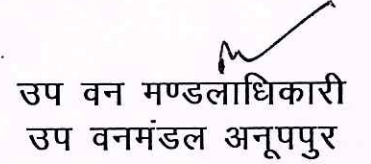 उप वन मण्डलाधिकारी
उप वनमंडल अनूपपुर